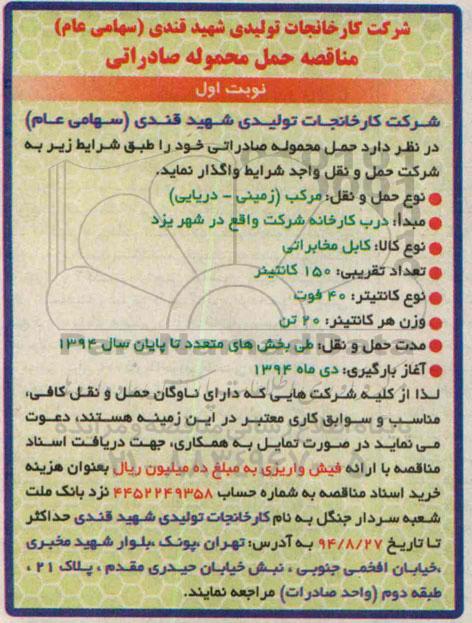 شرکت کارخانجات تولیدی شهید قندی (سهامی عام)
مناقصه حمل محموله صادراتی
نوبت اول
شرکت کارخانجات تولیدی شهید قندی (سهامی عام)
در نظر دارد حمل محموله صادراتی خود را طبق شرایط زیر به
شرکت حمل و نقل واجد شرایط واگذار نماید.
نوع حمل و نقل: مرکب (زمینی - دریایی)
مبدأ: درب کارخانه شرکت واقع در شهر یزد
نوع کالا: کابل مخابراتی
تعداد تقریبی: ۱۵۰ کانتینر
نوع کانتیتر: ۴۰ فوت
وزن هر کانتینر: ۲۰ تن
مدت حمل و نقل: طی بخش های متعدد تا پایان سال ۱۳۹۴
آغاز بارگیری: دی ماه ۱۳۹۴
لذا از کلیه شرکت هایی که دارای ناوگان حمل و نقل کافی،
مناسب و سوابق کاری معتبر در این زمینه هستند، دعوت
می نماید در صورت تمایل به همکاری، جهت دریافت اسناد
مناقصه با ارائه فیش واریزی به مبلغ ده میلیون ریال بعنوان هزینه
خرید اسناد مناقصه به شماره حساب ۴۴۵۲۲۴۹۳۵۸ نزد بانک ملت
شعبه سردار جنگل به نام کارخانجات تولیدی شهید قندی حداکثر
تا تاریخ ۹۴/۸/۲۷ به آدرس: تهران ،پونک ،بلوار شهید مخبری
،خیابان افخمی جنوبی ، نبش خیابان حیدری مقدم ، پلاک ۲۱ ،
طبقه دوم (واحد صادرات) مراجعه نمایند.